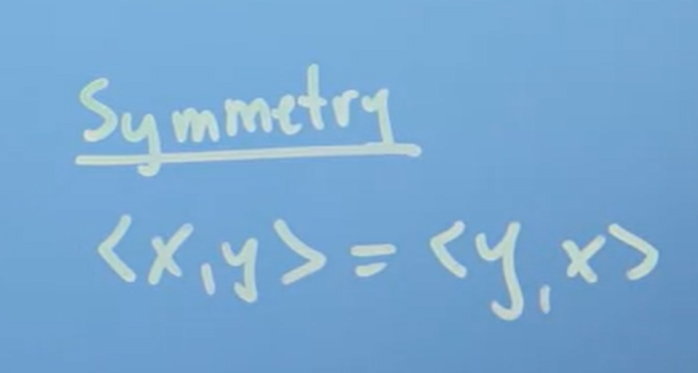 Symmetry
<x,y> = <y,x>